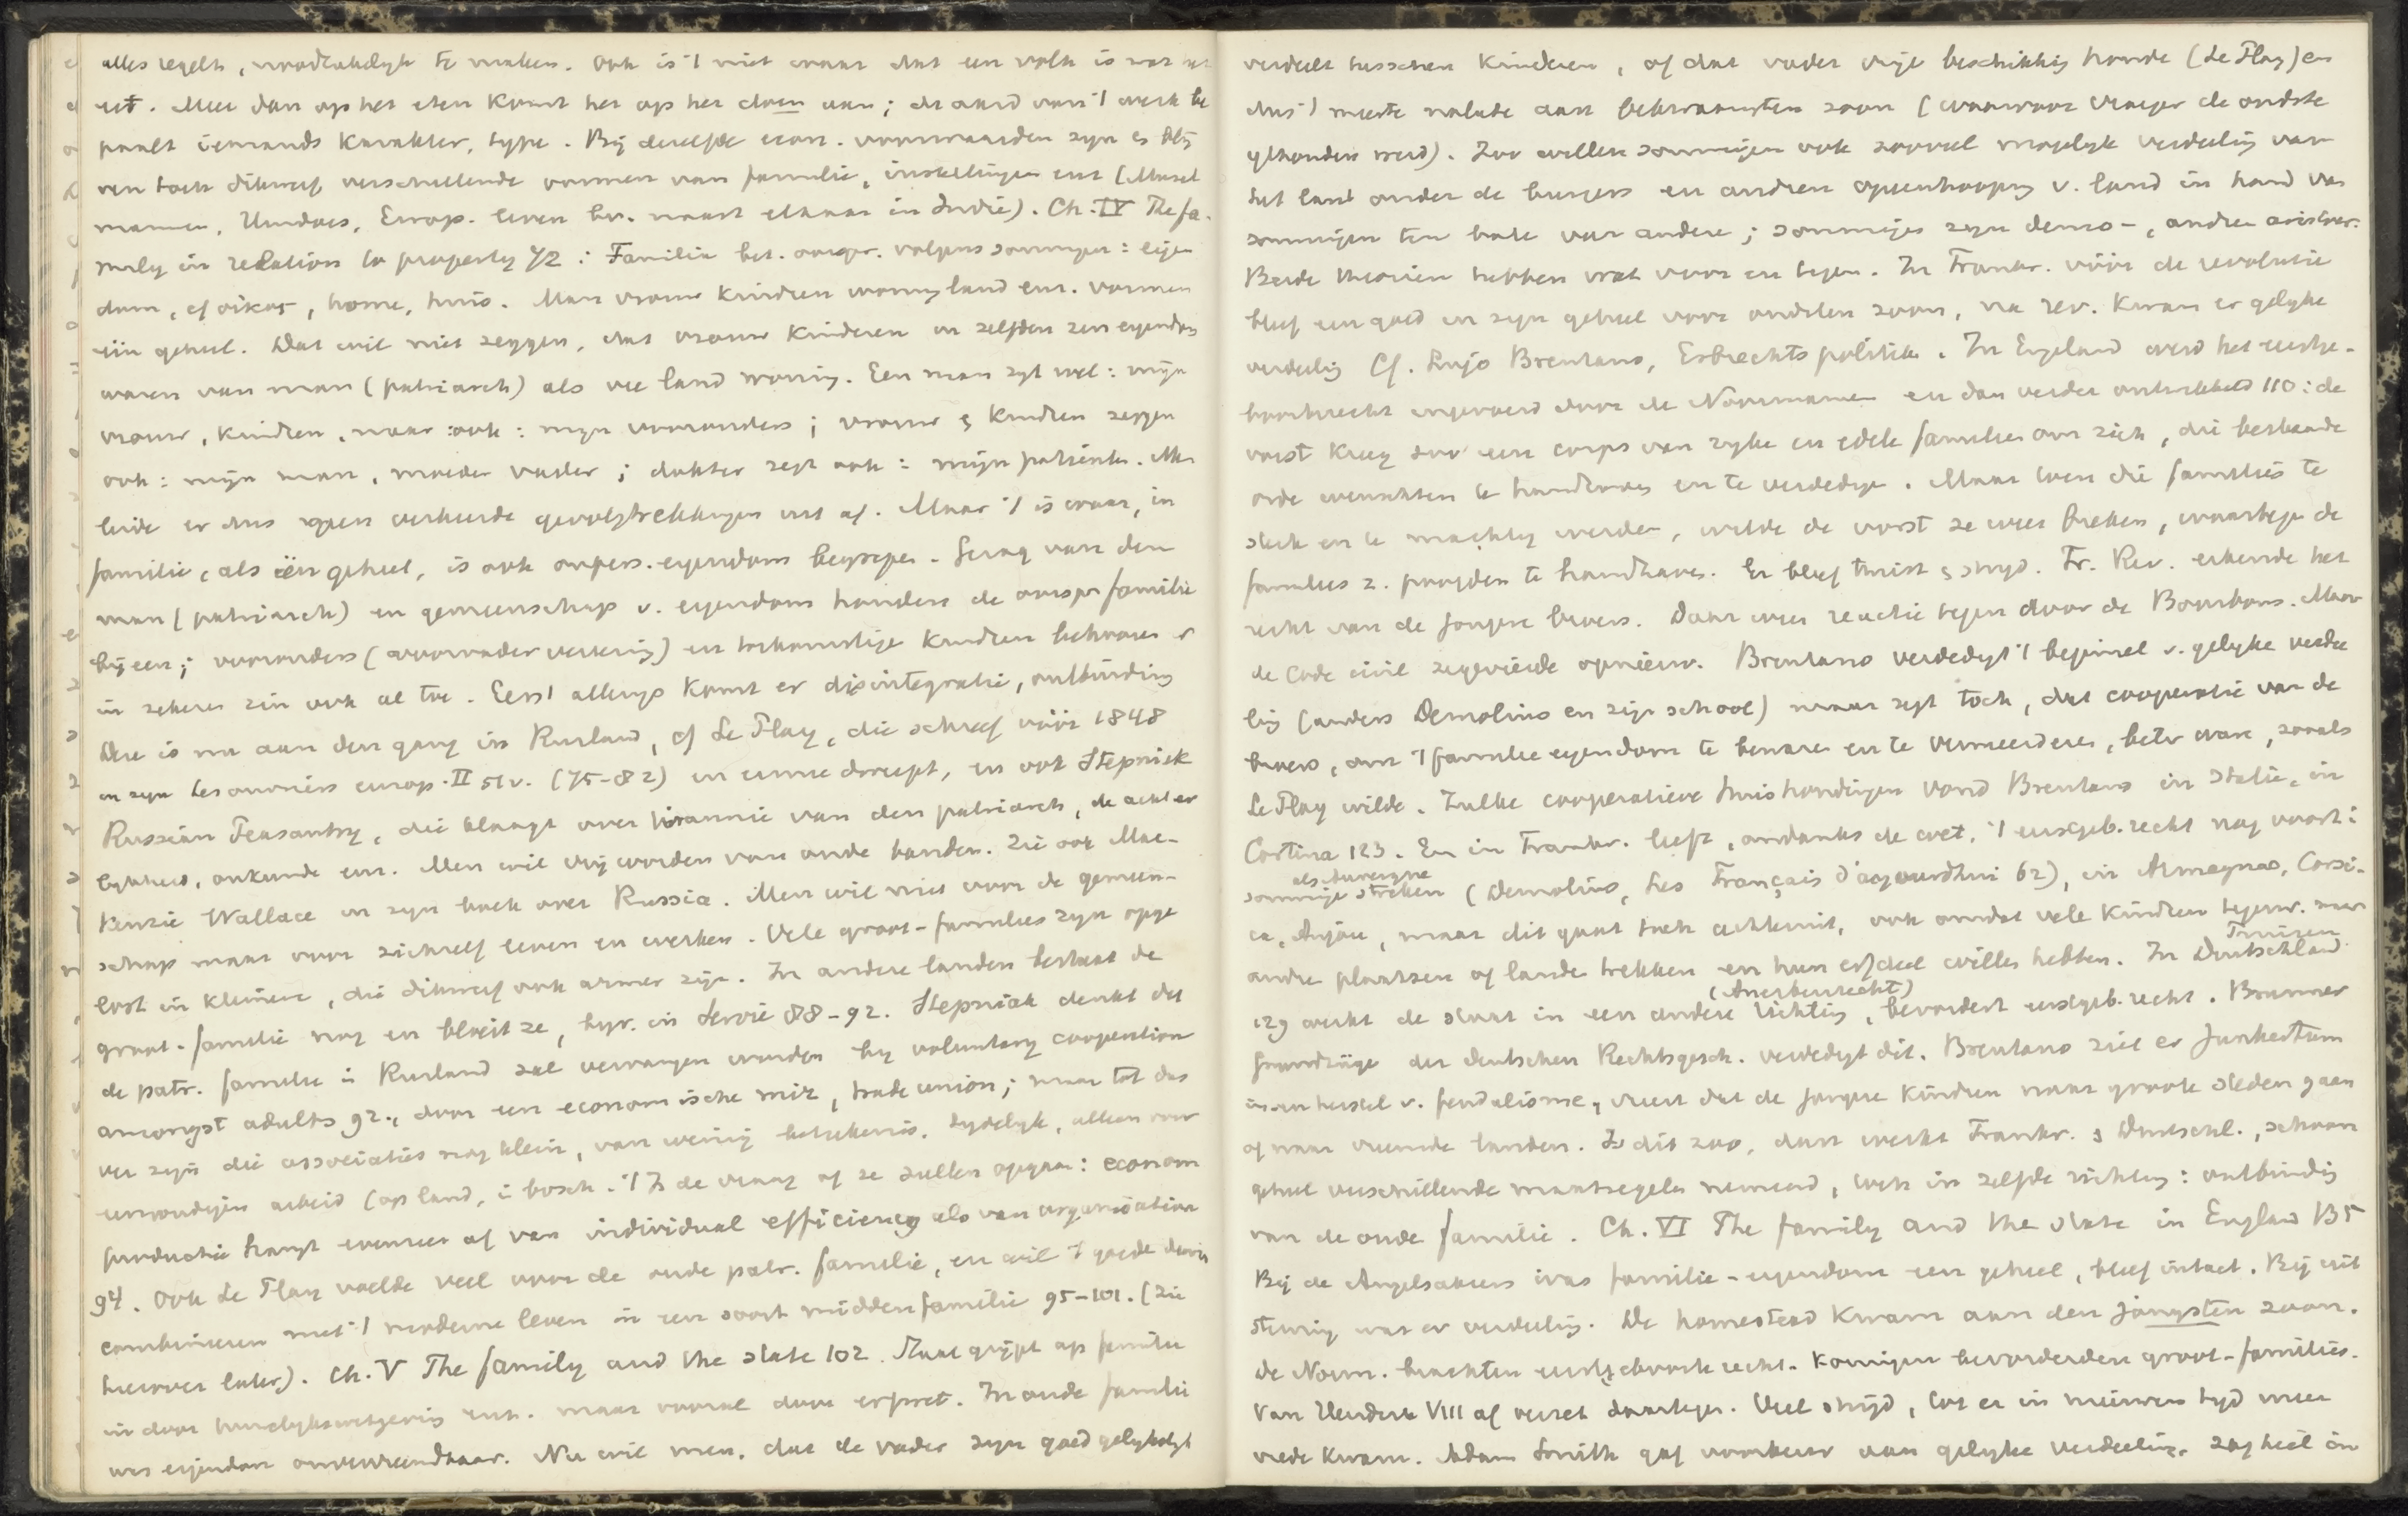 alles regelt, noodzakelijk te maken. Ook is 't niet waar dat een volk is wat het
eet. Meer dan op het eten komt het op het doen aan; de aard van 't werk be
paalt iemands karakter, type. Bij dezelfde econ. voorwaarden zyn er bly
ven toch dikwerf verschillende vormen van familie, instellingen enz (Musel
mannen, Hindoes, Europ. leven bv. naast elkaar in Indië). Ch. IV The fa-
mily in relation to property 72 : Familia bet. oorspr. volgens sommigen : eigen
dom, cf oikos, home, huis. Man vrouw kindren woning land enz. vormen
één geheel. Dat wil niet zeggen, dat vrouw kinderen in zelfden zin eigendom
waren van man (patriarch) als vee land woning. Een man zegt wel : mijn
vrouw, kindren, maar ook : mijn voorouders ; vrouw & kindren zeggen
ook : mijn man, moeder vader ; dokter zegt ook : mijn patienten. Men
leide er dus geen verkeerde gevolgtrekkingen uit af. Maar 't is waar, in
familie, als één geheel, is ook onpers. eigendom begrepen. Gezag van den
man (patriarch) en gemeenschap v. eigendom houden de oorspr familie
bijeen ; voorouders (voorvadervereering) en toekomstige kindren behooren er
in zekeren zin ook al toe. Eerst allengs komt er disintegratie, ontbinding
Deze is nu aan den gang in Rusland, cf Le Play, die schreef vóór 1848
in zyn Les ouvriers europ. II 51v. (75-82) en eenre dorcept, en ook Stepniak
Russian Peasantry, die klaagt over tirannie van den patriarch, de achter
lykheid, onkunde enz. Men wil vrij worden van oude banden. Zie ook Mac-
kenzie Wallace in zyn boek over Russia. Men wil niet voor de gemeen-
schap maar voor zichzelf leven en werken. Vele groot-families zyn opge
lost in kleinere, die dikwerf ook armer zijn. In andere landen bestaat de
groot-familie nog en bloeit ze, byv. in Servië 88-92. Stepniak denkt dat
de patr. familie in Rusland zal vervangen worden by voluntary cooperation
amongst adults 92., door een economische mir, trade union ; maar tot dus
ver zyn die associaties nog klein, van weinig beteekenis, tydelyk, alleen voor
eenvoudigen arbeid (op land, in bosch. 't Is de vraag of ze zullen opgaan : econom
productie hangt evenzeer af van individual efficiency als van organisation
94. Ook Le Play voelde veel voor de oude patr. familie, en wil 't goede daarin
combineeren met 't moderne leven in een soort middenfamilie 95-101. (Zie
hierover later). Ch. V The family and the state 102. Staat grijpt op familie
in door huwelykswetgeving enz. maar vooral door erfrecht. In oude familie
was eigendom onvervreemdbaar. Nu wil men, dat de vader zyn goed gelykelyk
verdeelt tusschen kinderen, of dat vader vrije beschikking houde (Le Play) en
dus 't meeste nalate aan bekwaamsten zoon (waarvoor vroeger de oudste
gehouden werd). Zoo willen sommigen ook zooveel mogelyk verdeeling van
het land onder de burgers en andren opeenhooping v. land in hand van
sommigen ten bate van andere ; sommigen zyn demo-, andre aristocr.
Beide theorieën hebben wat voor en tegen. In Frankr. vóór de revolutie
bleef een goed in zyn geheel voor oudsten zoon, na rev. kwam er gelyke
verdeeling Cf. Lujo Brentano, Erbrechtspolitik. In Engeland werd het eerstge-
boorterecht ingevoerd door de Noormannen en dan verder ontwikkeld 110 : de
vorst kreeg zoo een corps van ryke en edele families om zich, die bestaande
orde wenschten te handhaven en te verdedigen. Maar toen die families te
sterk en te machtig werden, wilde de vorst ze weer breken, waartegen de
families z. poogden te handhaven. Er bleef twist & stryd. Fr. Rev. erkende het
recht van de jongere broers. Daar weer reactie tegen door de Bourbons. Maar
de code civil zegevierde opnieuw. Brentano verdedigt 't beginsel v. gelyke verdee
ling (anders Demolins en zijn school) maar zegt toch, dat cooperatie van de
broers, om 't familie eigendom te bewaren en te vermeerderen, beter ware, zooals
Le Play wilde. Zulke cooperatieve huishoudingen vond Brentano in Italië, in
Cortina 123. En in Frankr. leeft, ondanks de wet, 't eerstgeb. recht nog voort :
als Auvergne
sommige streken (Demolins, Les Français d'aujourdhui 62), in Armagnac, Corsi-
ca, Anjou, maar dit gaat toch achteruit, ook omdat vele kindren tegenw. naar
andre plaatsen of landen trekken en hun erfdeel willen hebben. In Duitschland
Pruisen
129 werkt de staat in een andere richting, bevordert eerstgeb. recht. Brunner
(Anerbenrecht)
Grundzüge der deutschen Rechtsgesch. verdedigt dit. Brentano ziet er Junkertum
in en herstel v. feudalisme, vreest dat de jongere kindren naar groote steden gaan
of naar vreemde landen. Is dit zoo, dan werkt Frankr. & Duitschl., schoon
geheel verschillende maatregelen nemend, toch in zelfde richting : ontbinding
van de oude familie. Ch. VI The family and the state in England 135
Bij de Angelsaksen was familie-eigendom een geheel, bleef intact. Bij uit
sterving was er verdeeling. De homestead kwam aan den jongsten zoon.
De Norm. brachten eerstgeboorterecht. Koningen bevorderden groot-families.
Van Hendrik VIII af verzet daartegen. Veel strijd, tot er in nieuweren tyd meer
vrede kwam. Adam Smith gaf voorkeur aan gelyke verdeeling, zag heil in